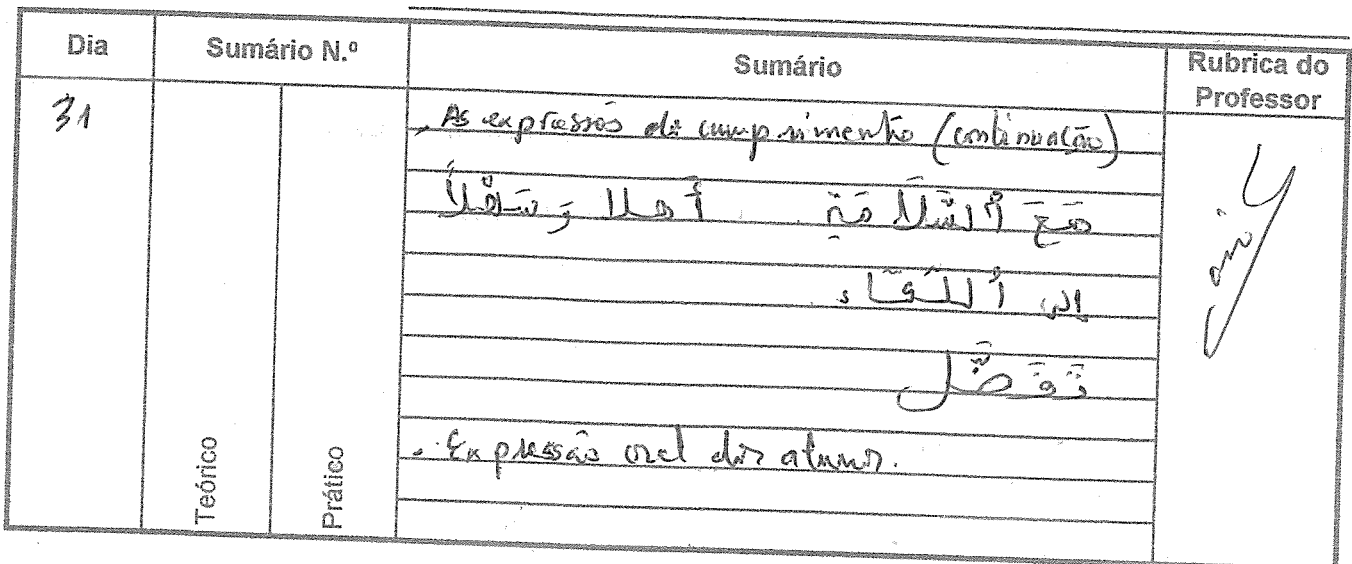 Dia Sumário N.º Sumário Rubrica do Professor
31
Teórico
Prático
. As expressões de cumprimento (continuação)
مَعَ ٱلسَّلَامَةِ أَهلا وَسَهْلاً
إلى ٱللِّقَاء
تَفَضَّل
. Expressão oral dos alunos.